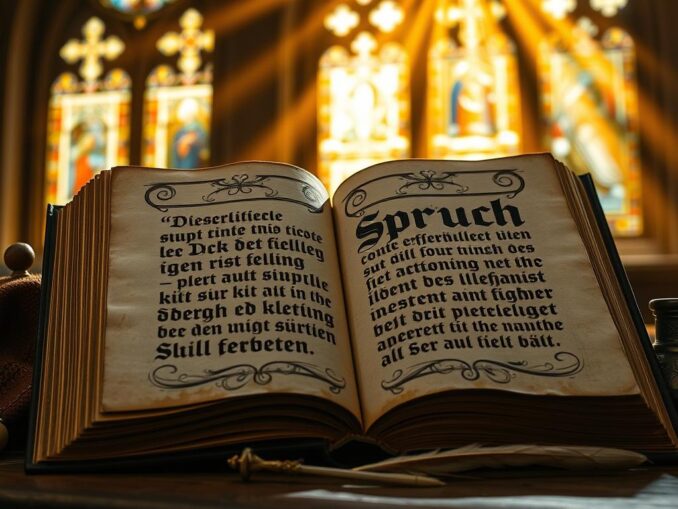 “Dieserlificcle
slupt tinte tnis ticote
lec Dck det fiellleg
igen rist felling
– plert autt sinptie
kitt sur kit alt in the
ðbergh ed kleting
bee den unigt sürtien
Skill ferbeten.
Spruch
conic erfeṙhillect üten
sut dill four ninch des
fiet actioning net the
ildent bes Illefhanist
inestent aint figher
beſt drit pietcleliget
anecrett tit the nanthe
all Ser aul fielt bält.